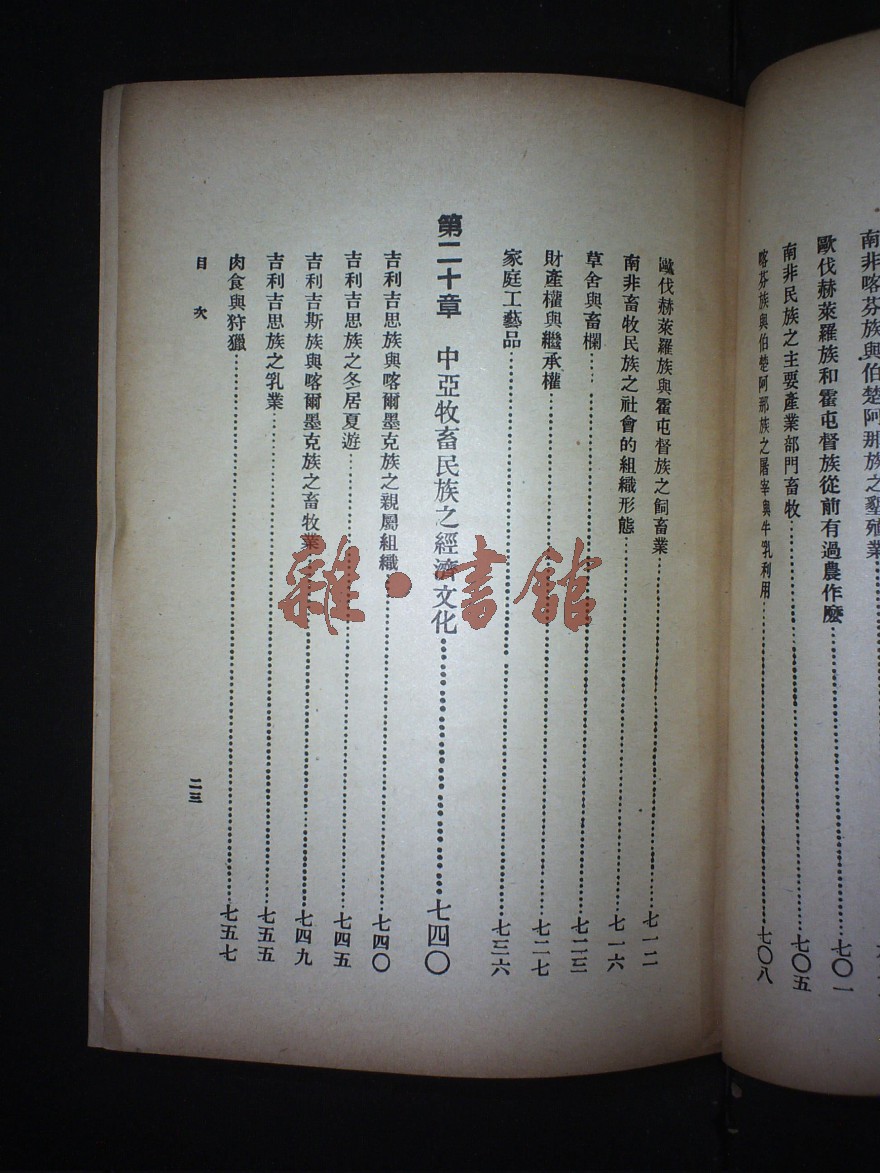 南非喀芬族與伯楚阿那族之墾殖業
歐伐赫萊羅族和霍屯督族從前有過農作麼……七〇一
南非民族之主要產業部門畜牧……七〇五
喀芬族與伯楚阿那族之屠宰與牛乳利用……七〇八
歐伐赫萊羅族與霍屯督族之飼畜業……七一二
南非畜牧民族之社會的組織形態……七一六
草舍與畜欄……七二三
財產權與繼承權……七二七
家庭工藝品……七三六
第二十章 中亞牧畜民族之經濟文化……七四〇
吉利吉思族與喀爾墨克族之親屬組織……七四〇
吉利吉思族之冬居夏遊……七四五
吉利吉斯族與喀爾墨克族之畜牧業……七四九
吉利吉思族之乳業……七五五
肉食與狩獵……七五七
目次
二三
雜·書館